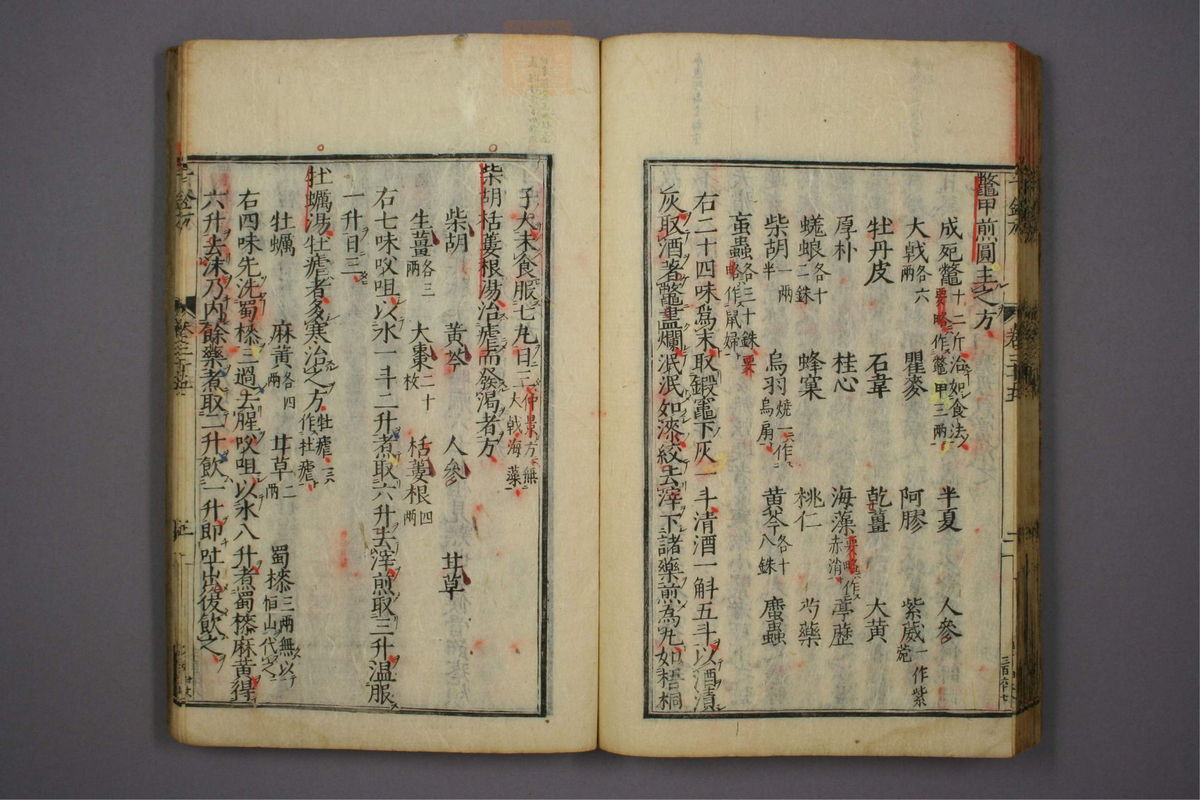 鼈甲煎圓主之方
成死鼈十二斤治如食法要略作鼈甲三兩 半夏 人參
大戟各六兩 瞿麥 阿膠 紫葳一作紫菀
牡丹皮 石韋 乾薑 大黃
厚朴 桂心 海藻要略作赤消 葶藶
蜣蜋各十二銖 蜂窠 桃仁 芍藥
柴胡一兩半 烏羽燒一作烏扇 黃芩各十八銖 䗪蟲
䖟蟲各三十銖要略作鼠婦
右二十四味為末取鍛竈下灰一斗清酒一斛五斗以酒漬
灰取酒著鼈盡爛泯泯如漆絞去滓下諸藥煎為丸如梧桐
子大末食服七丸日三仲景方無大戟海藻
柴胡栝蔞根湯治瘧而發渴者方
柴胡 黃芩 人參 甘草
生薑各三兩 大棗二十枚 栝蔞根四兩
右七味㕮咀以水一斗二升煮取六升去滓煎取三升温服
一升日三
牡蠣湯牡瘧者多寒治之方牡瘧一作牡瘧
牡蠣 麻黃各四兩 甘草二兩 蜀㯃三兩無以恒山代之
右四味先洗蜀㯃三過去腥㕮咀以水八升煮蜀㯃麻黃得
六升去沫乃内餘藥煮取二升飲一升即吐出後飲之